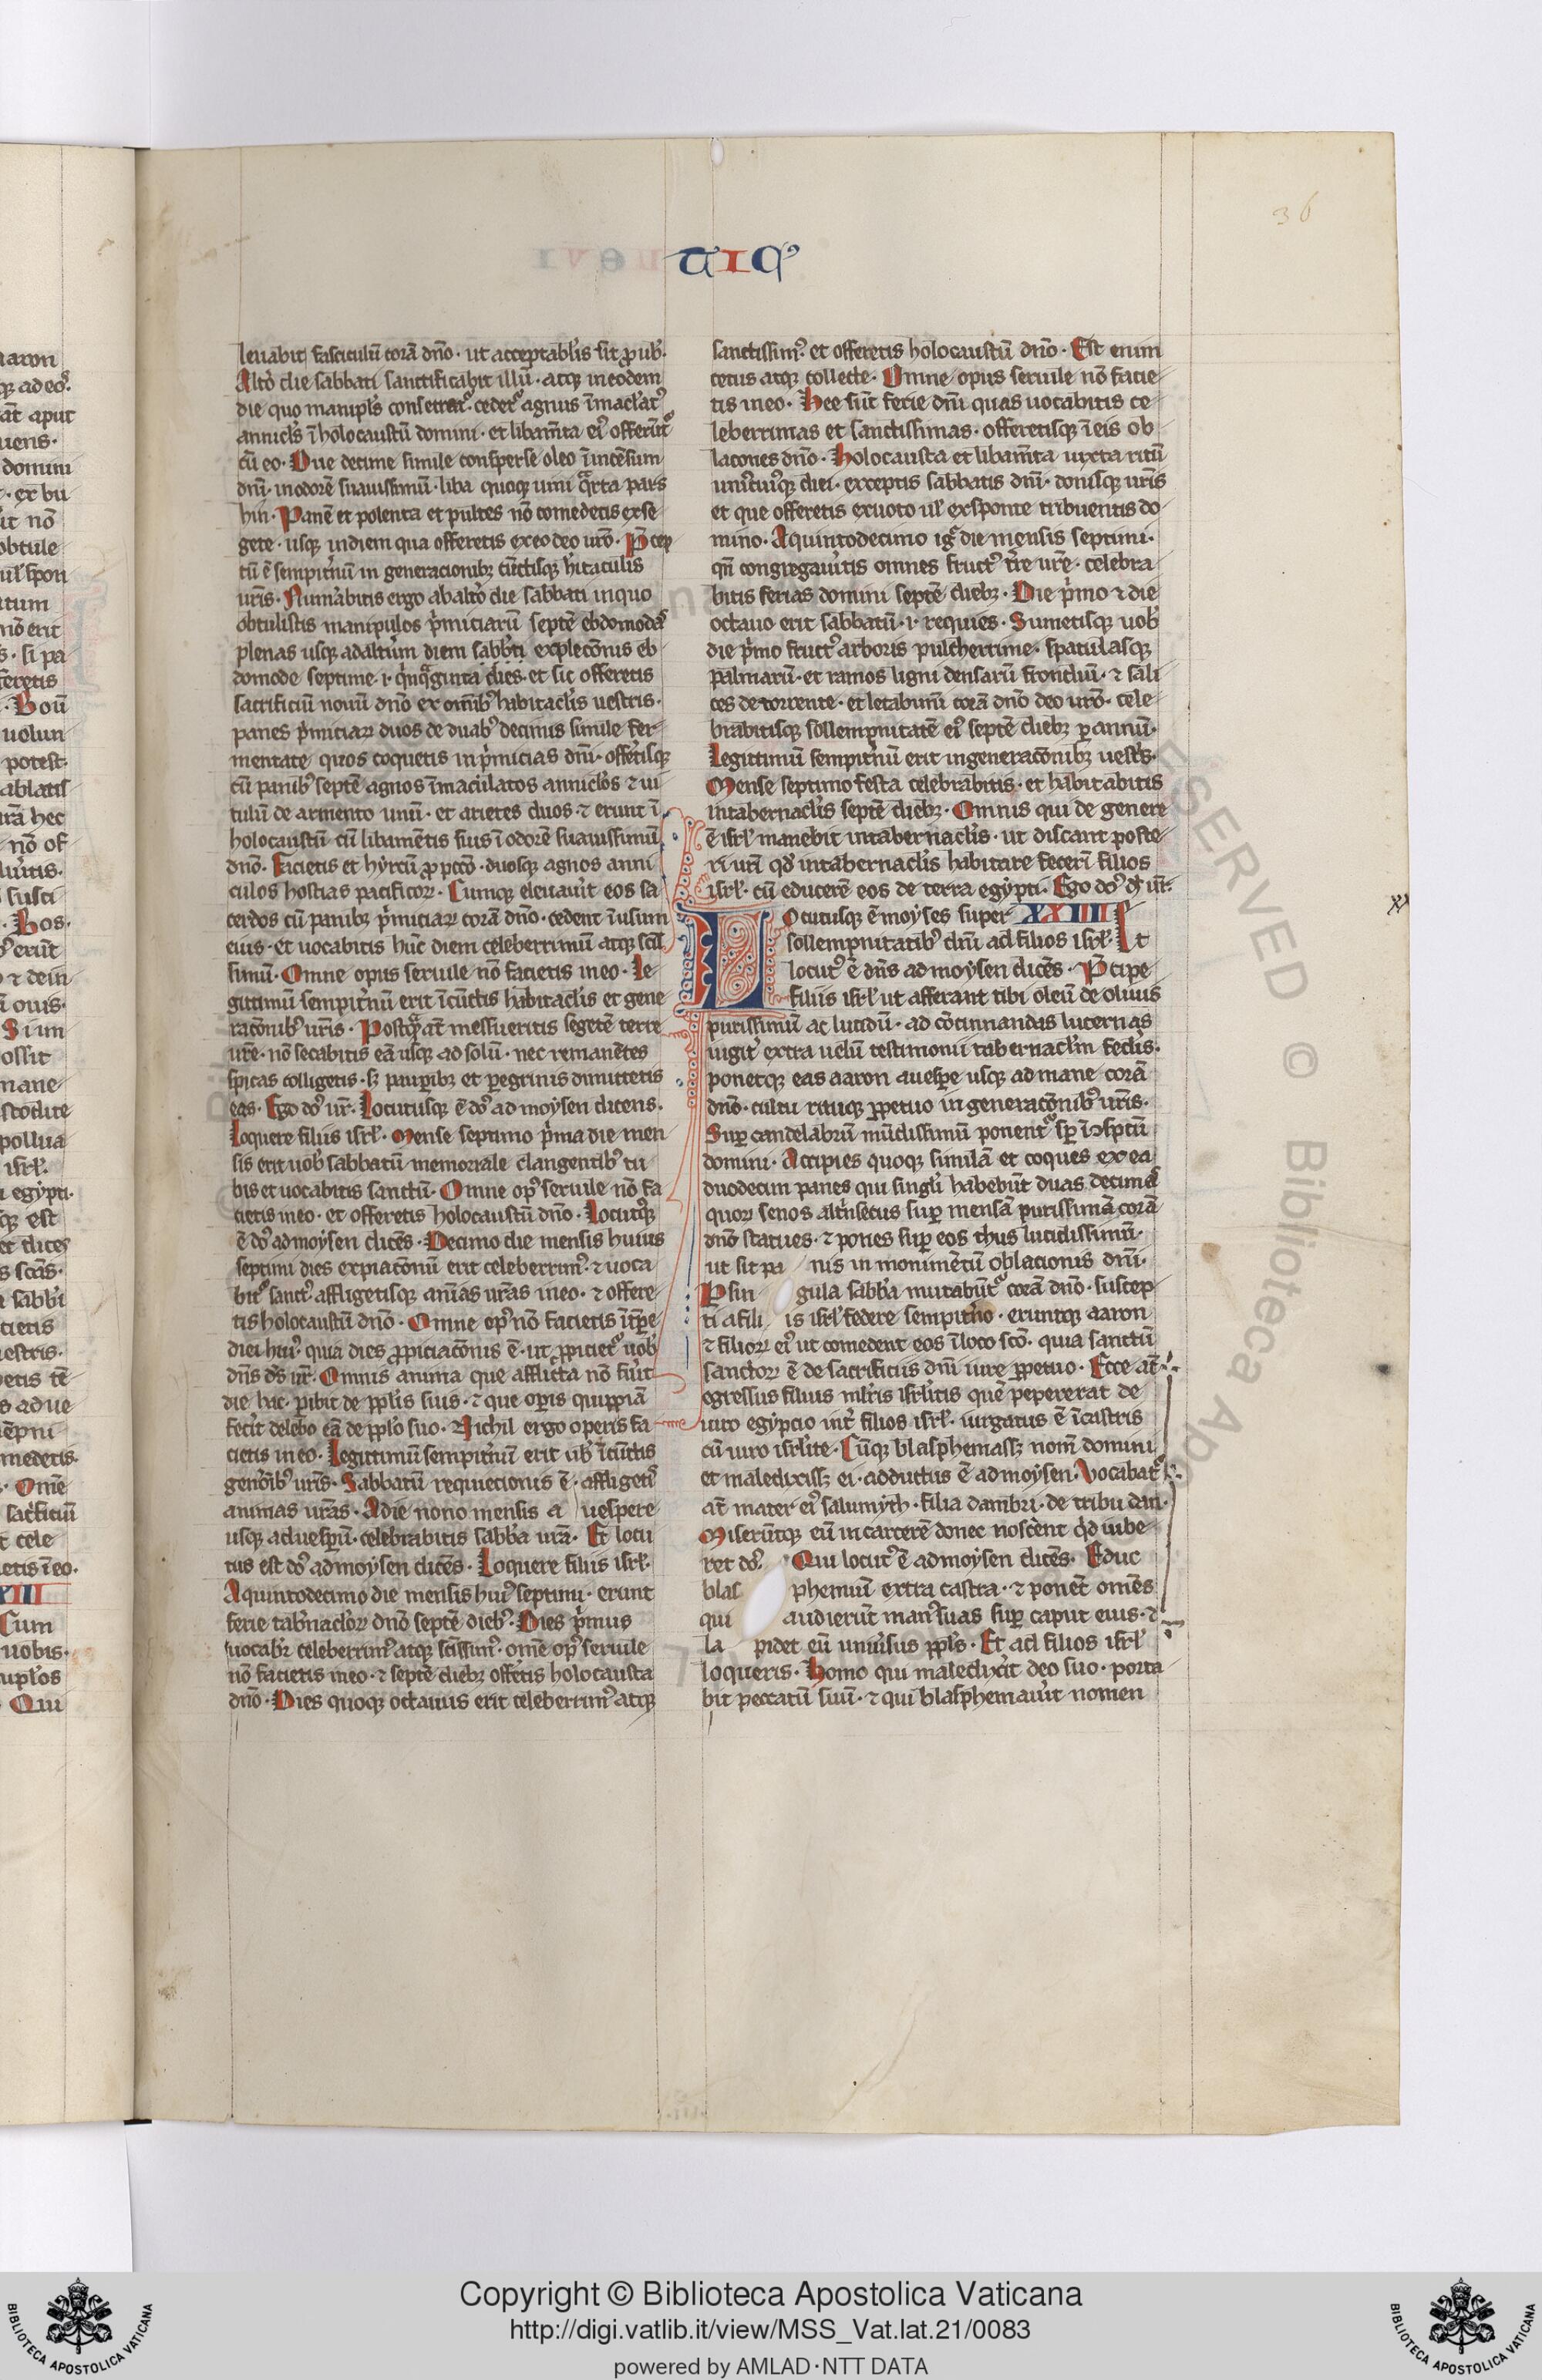 36
TICꝰ
leuabit fasciculū corā dn̄o · ut acceptabl'is sit ꝓ uob᷒ ·
Alt'o die sabbati sanctificabit illū · atqꝫ in eodem
die quo manipl's consecrat᷒ · cedet᷒ agnus īmaclat᷒
annicl's ī holocaustū domini · et libam̄ta ei᷒ offerūt᷒
cū eo · Due decime simile consperse oleo ī incēsum
dn̄i · in odorē suauissimū · liba quoqꝫ uini qͣrta pars
hin · Panē et polenta et pultes nō comedetis ex se
gete · usqꝫ in diem qua offeretis ex eo deo ur̄o · P̄cep
tū ē sempit'nū in generacionibꝫ cūctisqꝫ h'itaculis
ur̄is · Num'abitis ergo ab alt'o die sabbati in quo
obtulistis manipulos p'miciarū septē ebdomodas
plenas usqꝫ ad alt'um diem sabb'ti explecōnis eb
domode septime · i · q'nqͣginta dies · et sic offeretis
sacrificiū nouū dn̄o ex om̄ib᷒ habitacl'is uestris ·
panes p'miciaꝝ duos de duab᷒ decimis simile fer
mentate quos coquetis in p'micias dn̄i · offer'tisqꝫ
cū panib᷒ septē agnos īmaculatos annicl'os ⁊ ui
tulū de armento unū · et arietes duos · ⁊ erunt ī
holocaustū cū libamētis suis ī odorē suauissimū
dn̄o · Facietis et hyrcū ꝓ pcc̄o · duosqꝫ agnos anni
culos hostias pacificoꝝ · Cumqꝫ eleuau'it eos sa
cerdos cū panibꝫ p'miciaꝝ corā dn̄o · cedent ī usum
eius · et uocabitis hūc diem celeberrimū atqꝫ scīs
simū · Omne opus seruile nō facietis in eo · Le
gittimū sempit'nū erit ī cūctis habitacl'is et gene
racōnib᷒ ur̄is · Postqͣ at̄ messueritis segetē terre
ur̄e · nō secabitis eā usqꝫ ad solū · nec remanētes
spicas colligetis · sꝫ paupibꝫ et peregrinis dimittetis
eas · Ego do᷒ ur̄ · Locutusqꝫ ē do᷒ ad moysen dicens ·
Loquere filiis isrl' · Mense septimo p'ma die men
sis erit uob᷒ sabbatū memoriale clangentib᷒ tu
bis et uocabitis sanctū · Omne op᷒ seruile nō fa
cietis in eo · et offeretis holocaustū dn̄o · Locut᷒qꝫ
ē do᷒ ad moysen dicēs · Decimo die mensis huius
septimi dies expiacōnū erit celeberrim᷒ · ⁊ uoca
bit᷒ sanct᷒ · affligetisqꝫ anīas ur̄as in eo · ⁊ offere
tis holocaustū dn̄o · Omne op᷒ nō facietis ī tp̄e
diei hui᷒ · quia dies ꝓpiciacōnis ē · ut ꝓpiciet᷒ uob᷒
dn̄s ds̄ ur̄ · Omnis anima que afflicta nō fu'it
die hac · pibit de ppl'is suis · ⁊ que opis quippiā
fec'it delebo eā de ppl'o suo · Nichil ergo operis fa
cietis in eo · Legittimū sempit'nū erit uob᷒ ī cūctis
gen'onib᷒ ur̄is · Sabbatū requiecionis ē · affliget᷒
animas ur̄as · A die nono mensis a uespere
usqꝫ ad uesperū · celebrabitis sabb'a ur̄a · Et locu
tus est do᷒ ad moysen dicēs · Loquere filiis isrl' ·
A quintodecimo die mensis hui᷒ septimi · erunt
ferie tab'nacloꝝ dn̄o septē dieb᷒ · Dies p'mus
uocab'r celeberrim᷒ atqꝫ sc̄issim᷒ · omē op᷒ seruile
nō facietis in eo · ⁊ septē diebꝫ off'etis holocausta
dn̄o · Dies quoqꝫ octauus erit celeberrim᷒ atqꝫ
sanctissim᷒ · et offeretis holocaustū dn̄o · Est enim
cetus atqꝫ collecte · Omne opus seruile nō facie
tis in eo · Hee sūt ferie dn̄i quas uocabitis ce
leberrimas et sanctissimas · offeretisqꝫ ī eis ob
lacones dn̄o · Holocausta et libam̄ta iuxta ritū
uni᷒cui᷒qꝫ diei · exceptis sabbatis dn̄i · donisqꝫ ur̄is
et que offeretis ex uoto ul' ex sponte tribuentis do
mino · A quintodecimo igͥ die mensis septimi ·
qn̄ congregau'itis omnes fruct᷒ t're ur̄e · celebra
bitis ferias domini septē diebꝫ · Die p'mo ⁊ die
octauo erit sabbatū · i · requies · Sumetisqꝫ uob᷒
die p'mo fruct᷒ arboris pulcherrime · spatulasqꝫ
palmarū · et ramos ligni densarū frondiū · ⁊ sali
ces de torrente · et letabimī corā dn̄o deo ur̄o · cele
brabitisqꝫ sollempnitatē ei᷒ septē diebꝫ p annū ·
Legittimū sempit'nū erit in generacōnibꝫ uest'is ·
Mense septimo festa celebrabitis · et habitabitis
in tabernacl'is septē diebꝫ · Omnis qui de genere
ē isrl' manebit in tabernacl'is · ut discant poste
ri ur̄i qd̄ in tabernacl'is habitare fecerī filios
isrl' · cū educerē eos de terra egypti · Ego do᷒ ds̄ ur̄ ·
Locutusqꝫ ē moyses super XXIIII
sollempnitatib᷒ dn̄i ad filios isrl' · Et
locut᷒ ē dn̄s ad moysen dicēs · P̄cipe
filiis isrl' ut afferant tibi oleū de oliuis
purissimū ac lucidū · ad cōcinnandas lucernas
iugit' extra uelū testimonii tabernacl'm federis ·
ponetqꝫ eas aaron a uespe usqꝫ ad mane corā
dn̄o · cultu rituqꝫ ppetuo in generacōnib᷒ ur̄is ·
Sup candelabrū mūdissimū ponent᷒ sp̄ ī ɔsp̄tū
domini · Accipies quoqꝫ similā et coques ex ea
duodecim panes qui singl'i habebūt duas decimas
quoꝝ senos alt'insecus sup mensā purissimā corā
dn̄o statues · ⁊ pones sup eos thus lucidissimū ·
ut sit pa nis in monimētū oblacionis dn̄i ·
P sin gula sabb'a mutabūt᷒ corā dn̄o · suscep
ti a fili is isrl' federe sempit'no · eruntqꝫ aaron
⁊ filioꝝ ei᷒ ut comedent eos ī loco sc̄o · quia sanctū
sanctoꝝ ē de sacrificiis dn̄i iure ppetuo · Ecce at̄
egressus filius ml'ris isrl'itis quē pepererat de
uiro egypcio int' filios isrl' · iurgatus ē ī castris
cū uiro isrl'ite · Cūqꝫ blasphemassꝫ nom̄ domini
et maledixissꝫ ei · adductus ē ad moysen · Vocabat᷒
at̄ mater ei᷒ salumyth · filia dambri · de tribu dan ·
Miserūtqꝫ eū in carcerē donec noscēnt qd iube
ret do᷒ · Qui locut᷒ ē ad moysen dicēs · Educ
blas phemum extra castra · ⁊ ponēt omēs
qui audierūt man᷒ suas sup caput eius · ⁊
la pidet eū uniu'sus ppl's · Et ad filios isrl'
loqueris · Homo qui maledix'it deo suo · porta
bit peccatū suū · ⁊ qui blasphemau'it nomen
aaron
qꝫ ad eos᷒
at̄ aput
uens ·
domini
· ex bu
it nō
obtule
ul' spon
tum
nō erit
s · si pa
feretis
· Bouū
uolun
potest ·
ablatis
ura hec
nō of
Bos ·
erūt
⁊ dein
ouis ·
Si un
ossit
mane
pollua
isrl' ·
egypti ·
qꝫ est
et dices
s scās ·
sabb'i
cietis
uestris ·
etis tē
ad ue
medetis ·
· Om̄e
sac'ficiū
t cele
etis ī eo ·
XIII
Cum
uobis ·
ipl'os
· Qui
Copyright © Biblioteca Apostolica Vaticana
http://digi.vatlib.it/view/MSS_Vat.lat.21/0083
powered by AMLAD·NTT DATA
BIBLIOTECA APOSTOLICA VATICANA
BIBLIOTECA APOSTOLICA VATICANA